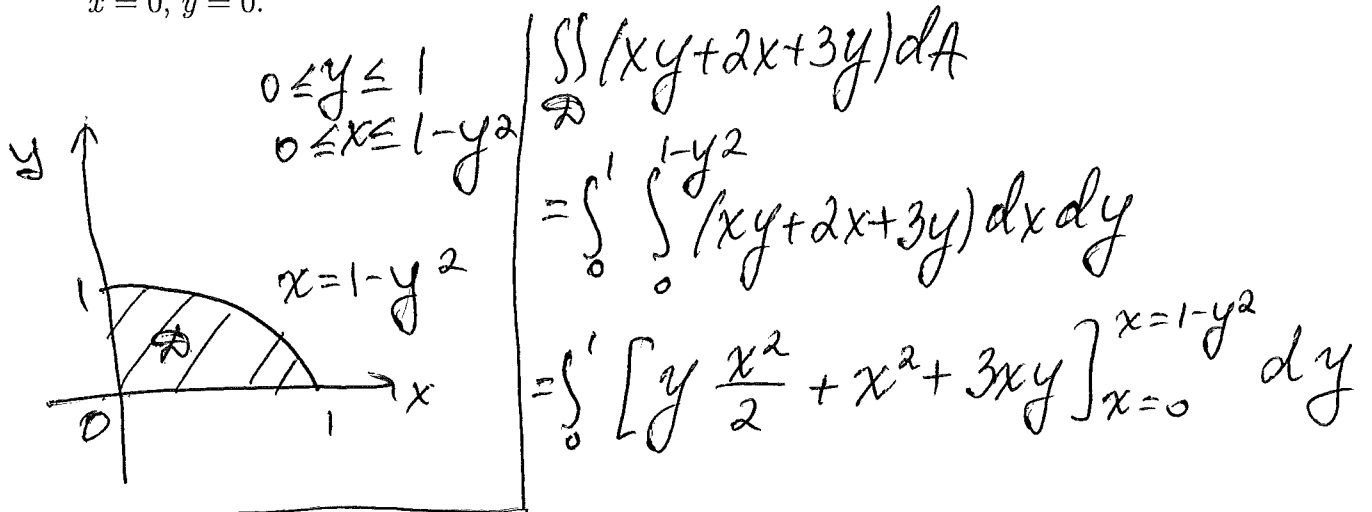 x = 0, y = 0.
0 ≤ y ≤ 1
0 ≤ x ≤ 1-y²
y
1
x = 1-y²
D
0
1
x
∬_D (xy+2x+3y) dA
= ∫₀¹ ∫₀^{1-y²} (xy+2x+3y) dx dy
= ∫₀¹ [y x²/2 + x² + 3xy]_{x=0}^{x=1-y²} dy